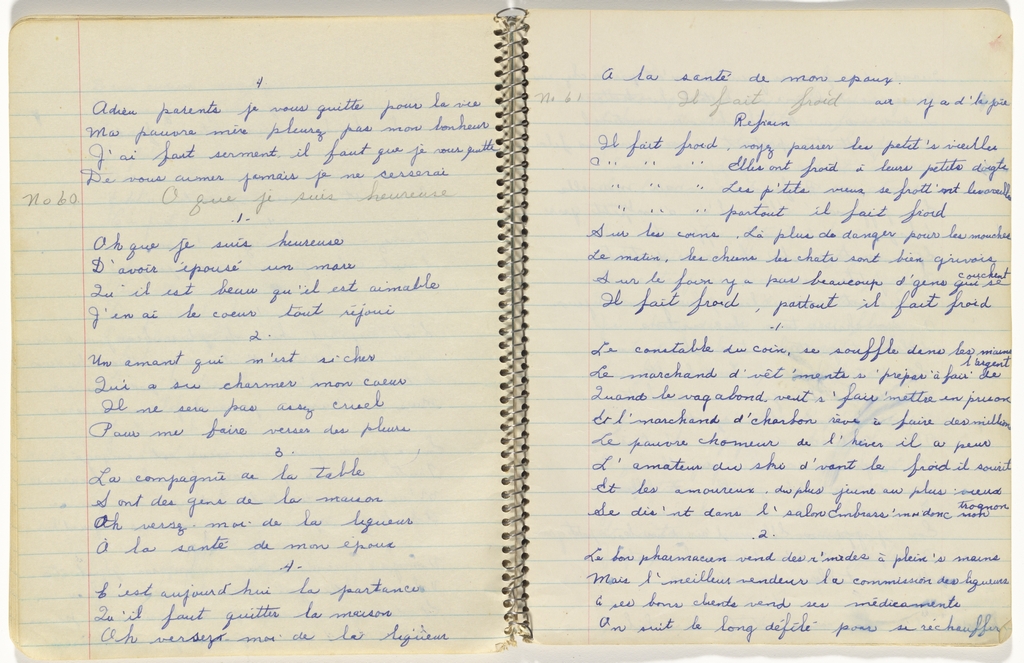 4
Adieu parents je vous quitte pour la vie
Ma pauvre mère pleurez pas mon bonheur
J'ai fait serment, il faut que je vous quitte
De vous aimer jamais je ne cesserai
No 60 O que je suis heureuse
1-
Oh que je suis heureuse
D'avoir épousé un mare
Qu'il est beau qu'il est aimable
J'en ai le coeur tout réjoui
2.
Un amant qui m'est si cher
Qui a su charmer mon coeur
Il ne sera pas assez cruel
Pour me faire verser des pleurs
3.
La compagnie de la table
Sont des gens de la maison
Oh versez-moi de la liqueur
A la santé de mon époux
4-
C'est aujourd'hui la partance
Qu'il faut quitter la maison
Oh versez moi de la liqueur
A la santé de mon epoux.
No 61 Il fait froid air y a d'la joie
Refrain
Il fait froid, voyez passer les petit's vieilles
" " " " Elles ont froid à leurs petits doigts
" " " " Les p'tits vieux se frott'nt les oreilles
" " " " partout il fait froid
Sur les coins, Là plus de danger pour les mouches
Le matin, les chiens les chats sont bien grivois
Sur le foin y a pas beaucoup d'gens qui se couchent
Il fait froid, partout il fait froid
-1-
Le constable du coin, se souffle dans les mains
Le marchand d'vêt'ments s'prépar' à fair' de l'argent
Quand le vagabond, veut s'fair' mettre en prison
Et l'marchand d'charbon rêve à faire des millions
Le pauvre chomeur de l'hiver il a peur
L'amateur du ski d'vant le froid il sourit
Et les amoureux, du plus jeune au plus vieux
Se dis'nt dans l'salon Embrass' moi donc mon trognon
.2.
Le bon pharmacien vend des r'mèdes à plein's mains
Mais l'meilleur vendeur la commission des liqueurs
A ses bons clients vend ses médicaments
On suit le long défilé pour se réchauffer